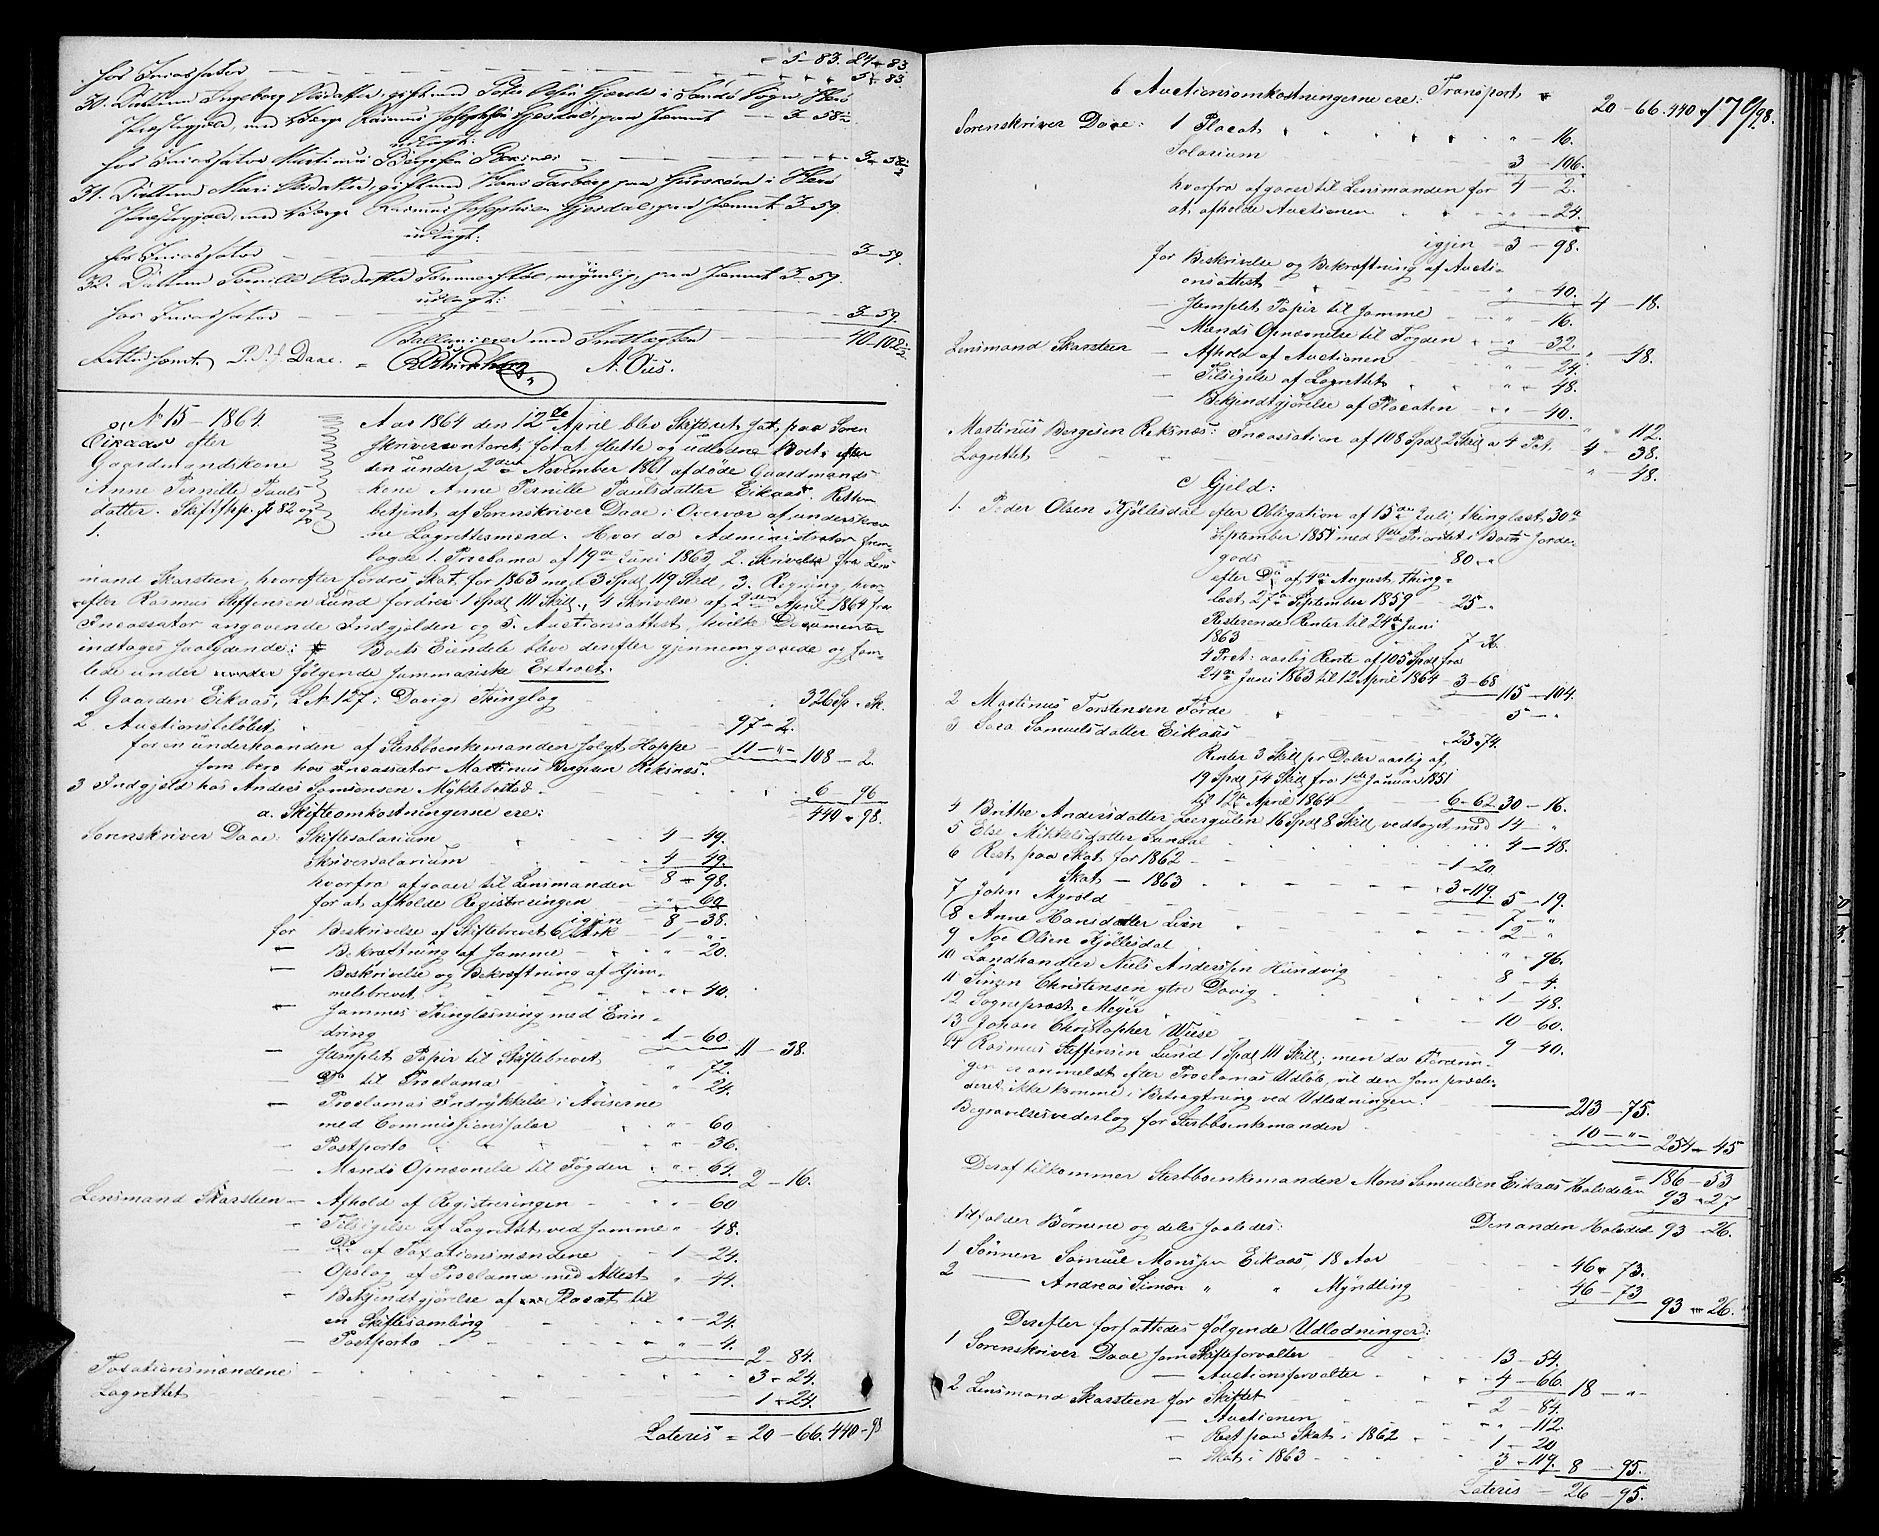 " 5-83. 24-83.
for Incassator " 5-83.
30. Datteren Ingeborg Olsdatter, gift med Peder Olsen Gjerde i Sandø Sogn Herø
Præstegjeld, med Laverge Rasmus Josephsen Gjesdal, paa Jemnt 3-58½
udlagt:
hos Incassator Martinus Børgesen Reksnes 3-58½
31. Datteren Mari Olsdatter, gift med Hans Tarberg paa Gurskøen i Herø
Præstegjeld, med Laverge Rasmus Josephsen Gjesdal, paa Jemnt 3-59
udlagt:
hos Incassator 3-59.
32. Datteren Pernille Olsdatter myndig, paa Jemnt 3-59.
udlagt:
hos Incassator 3-59.
Ballancerer med Indtægten 40-102½
Rettens Samt. Daae. A. Ous.
No 15 - 1864.
Eikaas efter
Gaardmandskone
Anne Pernille Pauls
datter. Skiftsp. p 82 og
1.
Aar 1864 den 12te April blev Skifteret sat paa Soren
skrivercontoret for at slutte og udlodde Boet efter
den under 2den November 1861 afdøde Gaardmands
kone Anne Pernille Paulsdatter Eikaas. Retten
betjent af Sorenskriver Daae i Overvær af underskrev
ne Lagrettesmænd. Hvor da Administrator frem-
lagde 1. Proclama af 19de Juni 1862, 2. Skrivelse fra Lens
mand Skarsteen, hvorefter fordres Skat for 1863 med 3 Spd 119 Skil, 3. Regning, hvor-
efter Rasmus Steffensen Lund fordrer 1 Spd 111 Skill, 4 Skrivelse af 2den April 1864 fra
Incassator angaaende Indgjelden og 5. Auctionsattest, hvilke Documenter
indtages saalydende: Boets Eiendele bleve derefter gjennemgaaede og sam-
lede under følgende summariske Extract.
1. Gaarden Eikaas, LNo 127 i Davig Thinglag 326 Sp. " Sk.
2. Auctionsbeløbet 97-2.
for en underhaanden af Stervboenkemanden solgt Hoppe 11-"- 108-2.
som bero hos Incassator Martinus Børgesen Reksnæs.
3 Indgjeld hos Anders Samsonsen Myklebostad 6-96
a. Skifteomkostningerne ere: 440-98.
Sorenskriver Daae: Skiftesalarium 4-49.
Skriversalarium 4-49.
hvorfra afgaaer til Lensmanden 8-98.
for at afholde Registreringen "-60
igjen 8-38.
for Beskrivelse af Skiftebrevet 6 Ark 1-"-
" Bekræftning af samme "-20.
" Beskrivelse og Bekræftning af Hjem-
melsbrevet "-40.
" Sammes Thinglæsning med Erin-
dring 1-60. 11-38.
- Stemplet Papir til Skiftebrevet "-72.
- Do til Proclama "-24.
- Proclamas Indrykkelse i Aviserne
med Commissionssalær "-60
- Postporto "-36.
- Mands Opnævnelse til Fogden "-64. 2-16.
Lensmand Skarsteen - Afhold af Registreringen "-60
- Tilsigelse af Lagrettet ved samme "-48.
- Do af Taxationsmændene 1-24.
- Opslag af Proclama med Attest "-44.
- Bekjendtgjørelse af Placat til
en Skiftesamling "-24.
- Postporto "-4. 2-84.
Taxationsmændene 3-24.
Lagrettet 1-24.
Lateris " 20-66. 440-98
Transport " 20-66. 440-98.
b Auctionsomkostningerne ere:
Sorenskriver Daae: 1 Placat "-16.
Salarium 3-106.
hvorfra afgaaer til Lensmanden for 4-2.
at afholde Auctionen "-24.
igjen 3-98.
for Beskrivelse og Bekræftning af Aucti-
onsattest "-40. 4-18.
- Stemplet Papir til samme "-16.
- Mands Opnævnelse til Fogden "-32. "-48.
Lensmand Skarsteen - Afhold af Auctionen "-24.
- Tilsigelse af Lagrettet "-48.
- Bekjendtgjørelse af Placaten "-40. "-112.
Martinus Børgesen Reksnæs: Incassation af 108 Spd 2 Skil a 4 Pct. 4-38.
Lagrettet "-48.
c Gjeld:
1. Peder Olsen Kjøllesdal efter Obligation af 15de Juli, thinglæst 30te
September 1857 med 1ste Prioritet i Boets Jorde-
gods 80-"
efter Do af 4de August thing-
læst 27de September 1859 25-"
Resterende Renter til 24de Juni
1863 7-36.
4 Pct: aarlig Rente af 105 Spd fra
24de Juni 1863 til 12 April 1864 3-68. 115-104.
2 Martinus Torstensen Førde 5-"
3 Sara Samuelsdatter Eikaas 23-74.
Renter 3 Skill pr Daler aarlig af
19 Spd 74 Skill fra 1ste Januar 1851
til 12te April 1864 6-62 30-16.
4 Brithe Andersdatter Leergulen 16 Spd 8 Skill vedtaget med 14-"
5 Else Mikkelsdatter Sandal 4-48.
6 Rest paa Skat for 1862 1-20.
Skat - 1863 3-119. 5-19.
7 John Myrold 7-"
8 Anne Hansdatter Lien 2-"
9 Noe Olsen Kjøllesdal "-96.
10 Landhandler Niels Anderssen Hundvig 8-4.
11 Simen Christensen ytre Davig 1-48.
12 Sognepræst Meyer 10-60.
13 Johan Christopher Wiese 9-40.
14 Rasmus Steffensen Lund 1 Spd 111 Skill; men da Fordrin-
gen er anmeldt efter Proclamas Udløb, vil den som præclu-
deret ikke komme i Betragtning ved Udlodningen. 213-75.
Begravelsesvederlag for Stervboenkemanden 10-"- 254-45
" 186-53
Deraf tilkommer Stervboenkemanden Mons Samuelsen Eikaas Halvdelen 93-27
Den anden Halvdel 93-26.
tilfalder Børnene og deles saaledes:
1 Sønnen Samuel Monssen Eikaas, 18 Aar 46-73.
2 — Andreas Simon " " Myndling 46-73
93-26.
Derefter forfattedes følgende Udlodninger:
1 Sorenskriver Daae som Skifteforvalter 13-54.
— Auctionsforvalter 4-66. 18-"
2 Lensmand Skarsteen for Skiftet 2-84.
- Auctionen "-112.
" Rest paa Skat i 1862 1-20
- Skat i 1863 3-119. 8-95.
Lateris - 26-95.